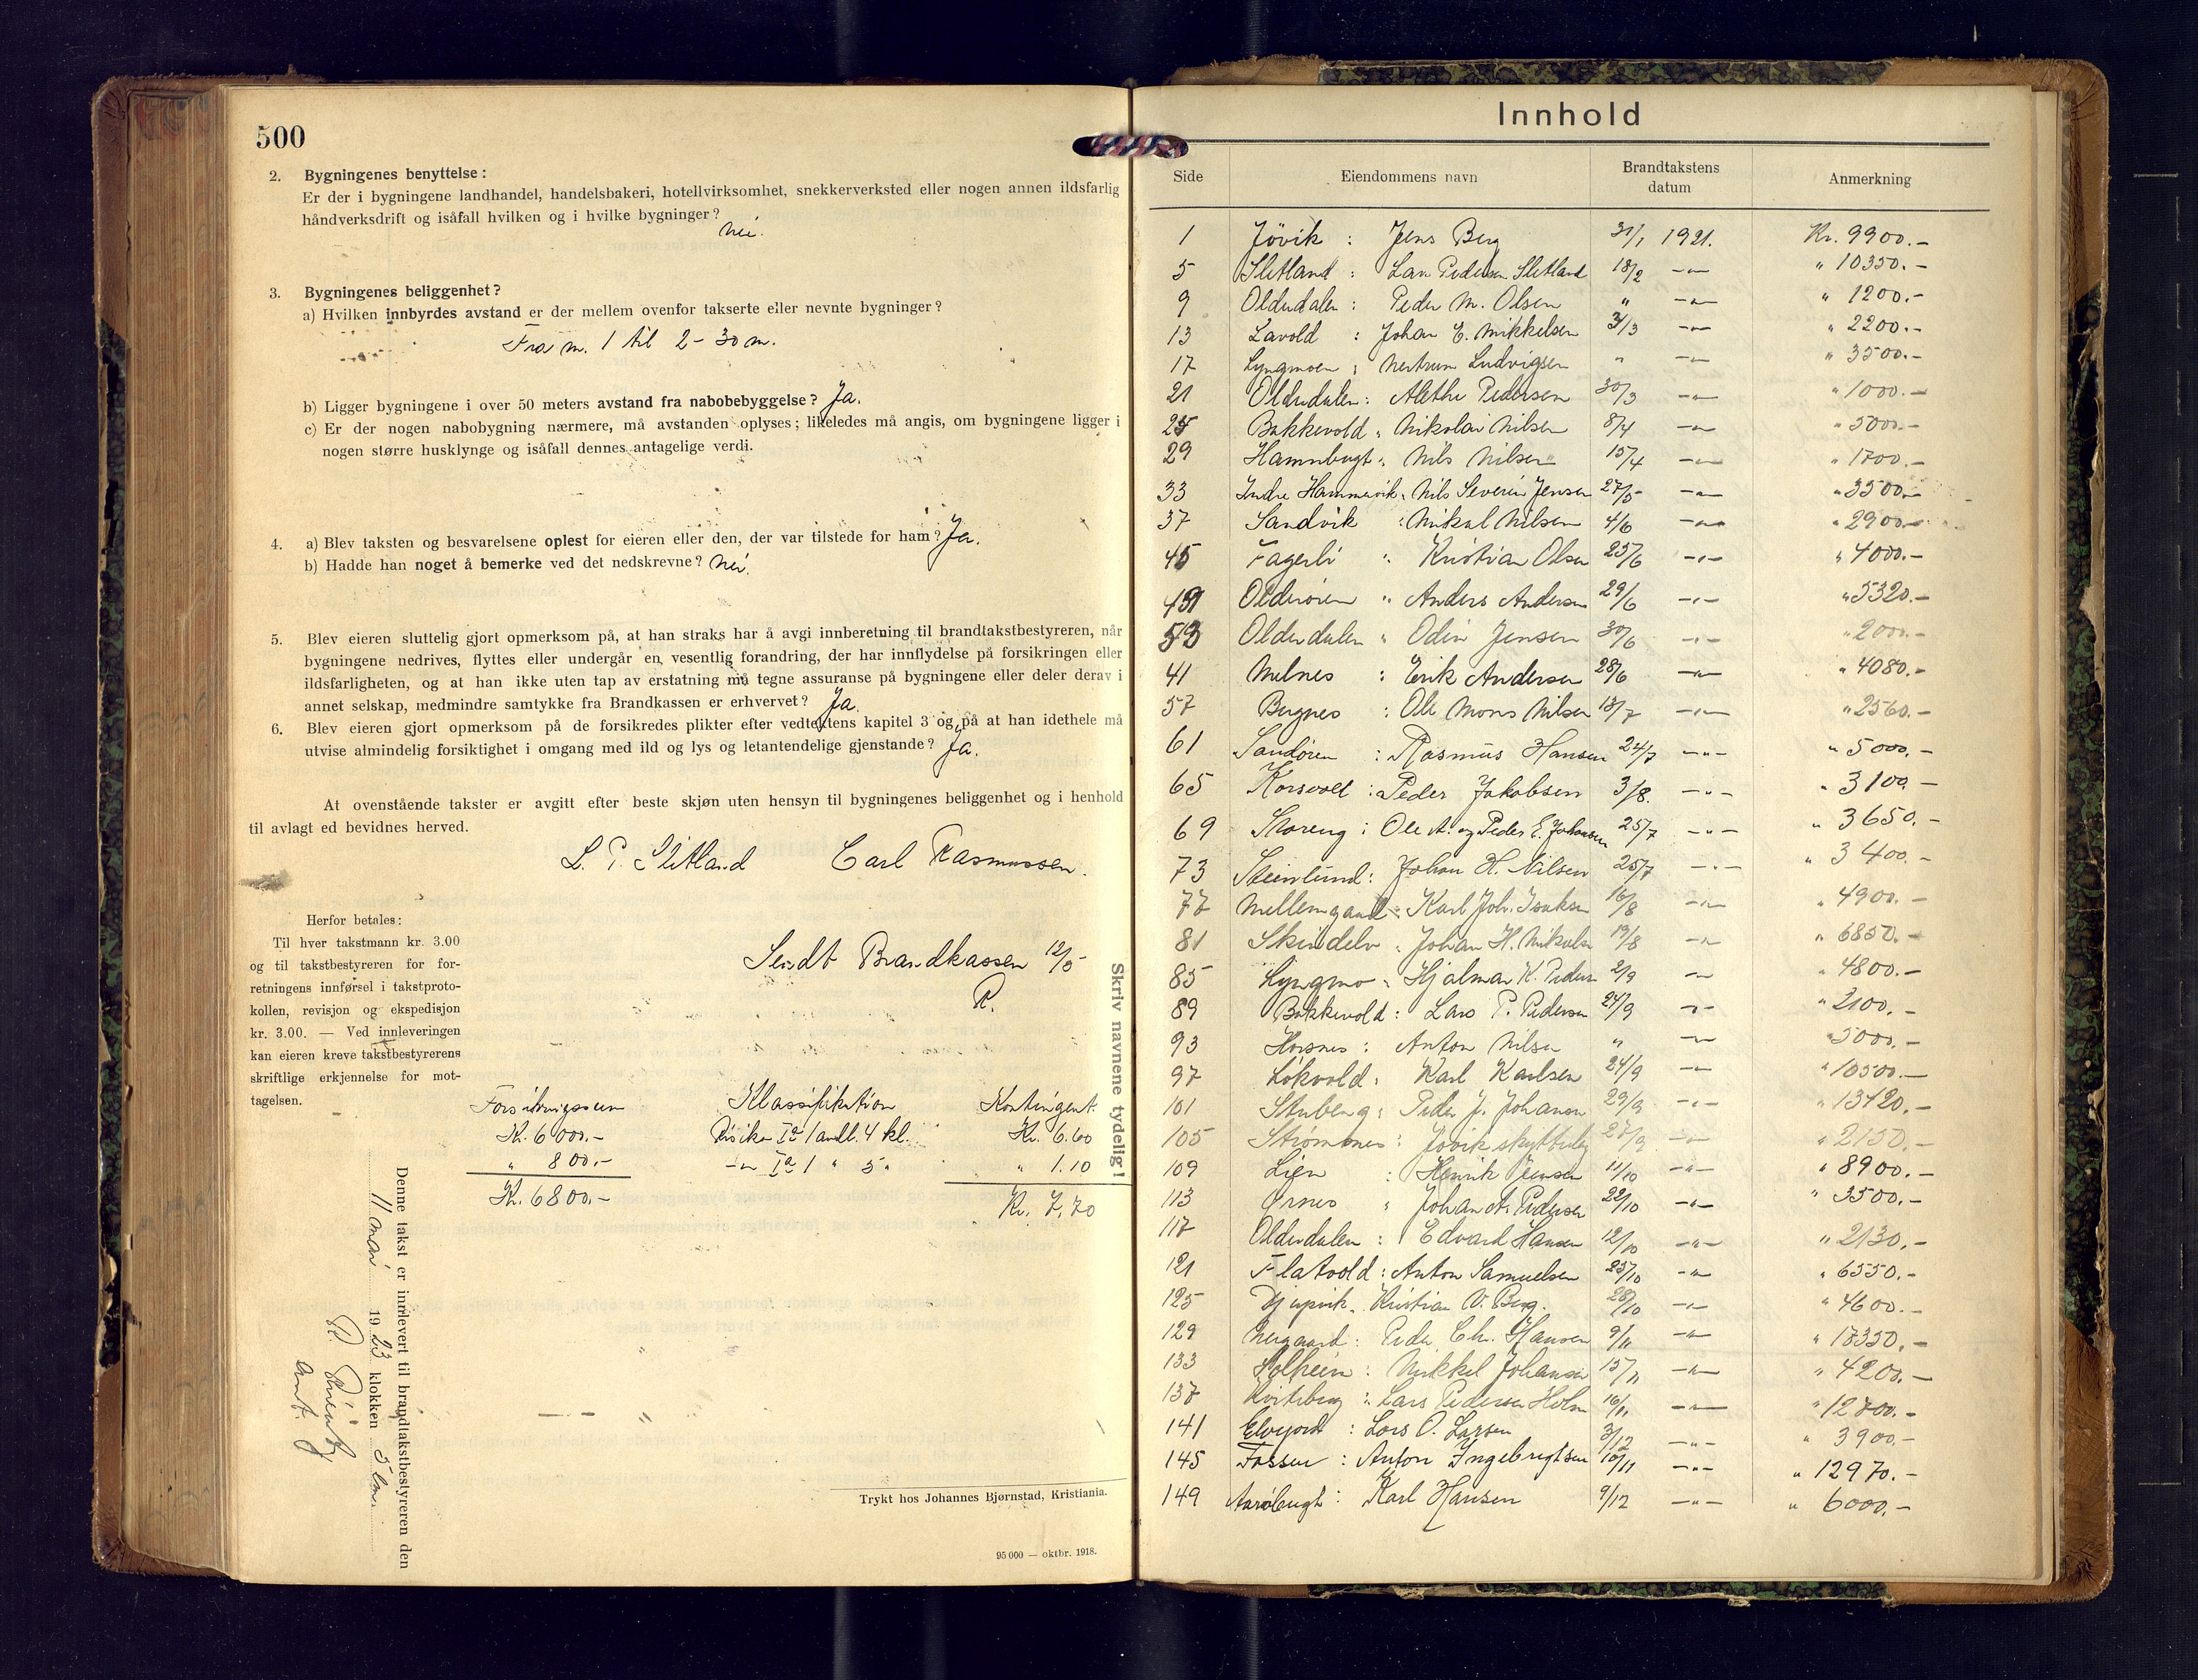 500
2. Bygningenes benyttelse:
Er der i bygningene landhandel, handelsbakeri, hotellvirksomhet, snekkerverksted eller nogen annen ildsfarlig
håndverksdrift og isåfall hvilken og i hvilke bygninger?
Nei.
3. Bygningenes beliggenhet?
a) Hvilken innbyrdes avstand er der mellem ovenfor takserte eller nevnte bygninger?
Fra m. 1 til 2 - 30 m.
b) Ligger bygningene i over 50 meters avstand fra nabobebyggelse? Ja.
c) Er der nogen nabobygning nærmere, må avstanden oplyses; likeledes må angis, om bygningene ligger i
nogen større husklynge og isåfall dennes antagelige verdi.
4. a) Blev taksten og besvarelsene oplest for eieren eller den, der var tilstede for ham? Ja.
b) Hadde han noget å bemerke ved det nedskrevne? Nei.
5. Blev eieren sluttelig gjort opmerksom på, at han straks har å avgi innberetning til brandtakstbestyreren, når
bygningene nedrives, flyttes eller undergår en vesentlig forandring, der har innflydelse på forsikringen eller
ildsfarligheten, og at han ikke uten tap av erstatning må tegne assuranse på bygningene eller deler derav i
annet selskap, medmindre samtykke fra Brandkassen er erhvervet? Ja.
6. Blev eieren gjort opmerksom på de forsikredes plikter efter vedtektens kapitel 3 og på at han idethele må
utvise almindelig forsiktighet i omgang med ild og lys og letantendelige gjenstande? Ja.
At ovenstående takster er avgitt efter beste skjøn uten hensyn til bygningenes beliggenhet og i henhold
til avlagt ed bevidnes herved.
L. P. Sletland Carl Rasmussen.
Herfor betales:
Til hver takstmann kr. 3.00
og til takstbestyreren for for-
retningens innførsel i takstproto-
kollen, revisjon og ekspedisjon
kr. 3.00. — Ved innleveringen
kan eieren kreve takstbestyrerens
skriftlige erkjennelse for mot-
tagelsen.
Sendt Brandkassen 12/5
R.
Forsikringssum Klassifikation Kontingent.
Kr. 6000.- Risiko Ia 1 andl. 4 kl. Kr. 6.60
" 800.- -"- Ia 1 " 5 " " 1.10
Kr. 6800.- Kr. 7.70
Skriv navnene tydelig!
Denne takst er innlevert til brandtakstbestyreren den
11 mai 1923 klokken 5 em.
Trykt hos Johannes Bjørnstad, Kristiania.
95 000 — oktbr. 1918.
Innhold
Side Eiendommens navn Brandtakstens datum Anmerkning
1 Jøvik : Jens Berg 31/1 1921. Kr. 9900.-
5 Sletland : Lars Pedersen Sletland 18/2 -"- " 10350.-
9 Olderdalen : Peder M. Olsen " -"- " 1200.-
13 Lavold : Johan E. Mikkelsen 3/3 -"- " 2200.-
17 Lyngmoen : Ludvigsen " -"- " 3500.-
21 Olderdalen : Alethe Pedersen 30/3 -"- " 1000.-
25 Bakkevold " Nikolai Nilsen 8/4 -"- " 5000.-
29 Hamnbugt " Nils Nilsen 15/4 -"- " 1700.-
33 Indre Hammervik " Nils Severin Jensen 27/5 -"- " 3500.-
37 Sandvik : Mikal Nilsen 4/6 -"- " 2900.-
45 Fagerli " Kristian Olsen 25/6 -"- " 4000.-
49 Olderøren " Anders Andersen 29/6 -"- " 5320.-
53 Olderdalen " Odin Jensen 30/6 -"- " 2000.-
41 Melnes : Erik Andersen 28/6 -"- " 4080.-
57 Bugnes : Ole Mons Nilsen 13/7 -"- " 2560.-
61 Sandøren : Rasmus Hansen 24/7 -"- " 5000.-
65 Korsvoll : Peder Jakobsen 3/8. -"- " 3100.-
69 Storeng : Ole A. og Peder E. Johansen 25/7 -"- " 3650.-
73 Steinlund : Johan H. Nilsen 25/7 -"- " 3400.-
77 Mellemgaard : Karl Joh. Isaksen 16/8 -"- " 4900.-
81 Skindelv " Johan H. Nikolai 19/8 -"- " 6850.-
85 Lyngmo " Hjalmar K. Peders 2/9 -"- " 4800.-
89 Bakkevold : Lars P. Pedersen 24/9 -"- " 2100.-
93 Horsnes : Anton Nilsen " -"- " 5000.-
97 Løkvold : Karl Karlsen 24/9 -"- " 10500.-
101 Stubeng : Peder J. Johansen 29/9 -"- " 13420.-
105 Strømmnes : Jøvik skytterlag 27/9 -"- " 2150.-
109 Lien : Henrik Jensen 11/10 -"- " 8900.-
113 Ørnes " Johan A. Pedersen 22/10 -"- " 3500.-
117 Olderdalen : Edvard Hansen 12/10 -"- " 2130.-
121 Flatvold : Anton Samuelsen 25/10 -"- " 6550.-
125 Djupvik " Kristian V. Berg. 28/10 -"- " 4600.-
129 Nergaard : Peder Chr. Hansen 9/11 -"- " 18350.-
133 Solheim : Mikkel Johansen 15/11 -"- " 4200.-
137 Kviteberg : Lars Pedersen Holm 16/11 -"- " 12700.-
141 Elvejord : Lars O. Larsen 3/12 -"- " 3900.-
145 Fossen : Anton Ingebrigtsen 10/11 -"- " 12970.-
149 Aarøbugt : Karl Hansen 9/12 -"- " 6000.-